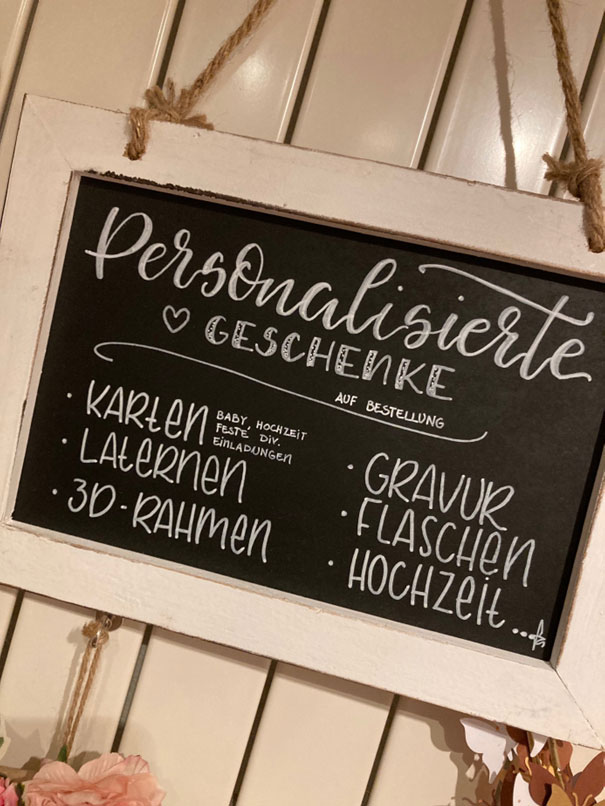 Personalisierte
♡ GESCHENKE
AUF BESTELLUNG
· KARTEN BABY, HOCHZEIT
FESTE DIV.
EINLADUNGEN
· LATERNEN
· 3D-RAHMEN
· GRAVUR
· FLASCHEN
· HOCHZEIT...